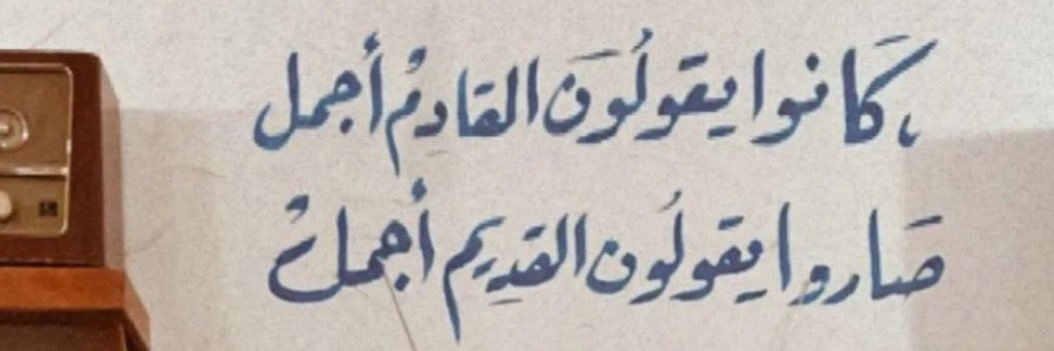 ،كَانوا يقولُونَ القادِمُ أجمل
صَاروا يقولُون القدِيم أجملُ